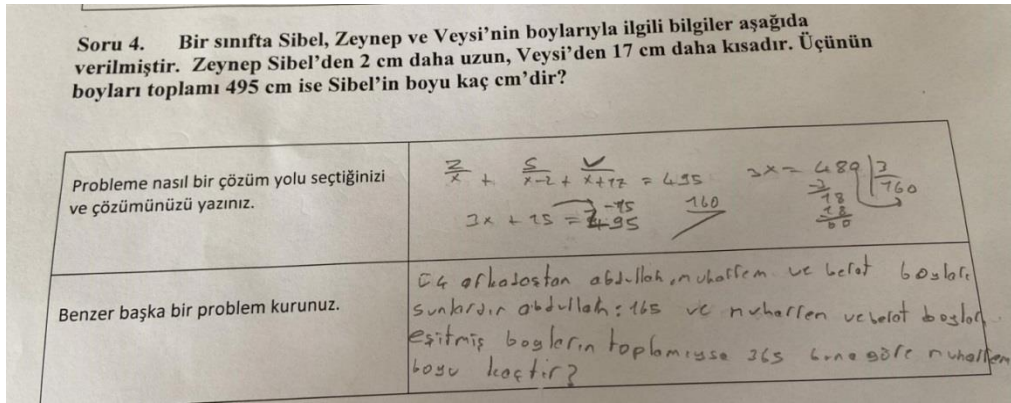 Soru 4. Bir sınıfta Sibel, Zeynep ve Veysi'nin boylarıyla ilgili bilgiler aşağıda
verilmiştir. Zeynep Sibel'den 2 cm daha uzun, Veysi'den 17 cm daha kısadır. Üçünün
boyları toplamı 495 cm ise Sibel'in boyu kaç cm'dir?
Probleme nasıl bir çözüm yolu seçtiğinizi
ve çözümünüzü yazınız.
Z S V
x + x-2 + x+17 = 495
3x + 15 = 495
-15
160
3x = 480 | 3
3 160
18
18
00
Benzer başka bir problem kurunuz.
üç arkadaştan abdullah, muharrem ve berat boyları
şunlardır abdullah: 165 ve muharrem ve berat boyları
eşitmiş boyların toplamıysa 365 buna göre muharrem
boyu kaçtır?